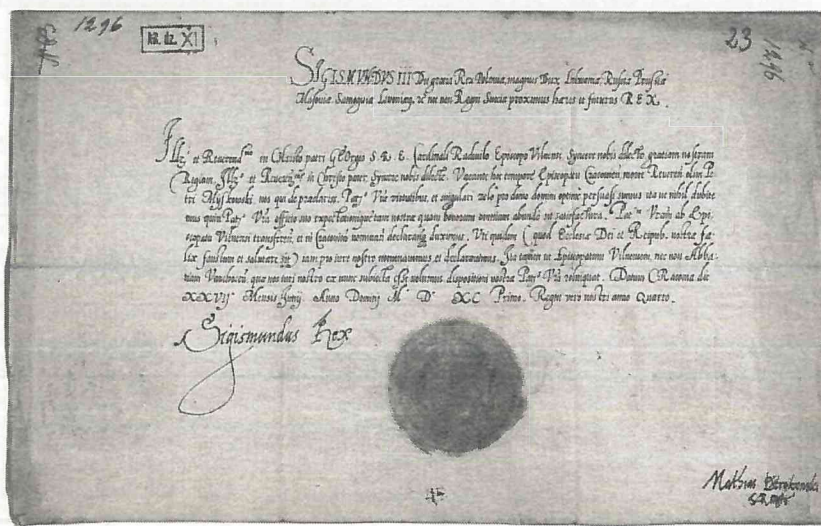 1296
XI
23
1296
SIGISMVNDVS III Dei gratia Rex Poloniæ, magnus Dux Lithuaniæ, Russiæ, Prussiæ
Masoviæ, Samogitiæ, Livoniæq, nec non Regni Sueciæ proximus hæres et futurus REX.
Illri et Reverendmo in Christo patri Georgio S. R. E. Cardinali Radivilo Episcopo Vilnensi syncere nobis dilecto, gratiam nostram
Regiam. Illr et Reverendme in Christo pater, syncere nobis dilecte. Vacante hoc tempore Episcopatu Cracoviensi morte Reverendi olim Pe-
tri Myszkowski, nos qui de præclariss. virtutibus, et singulari zelo pro domo domini optime persuasi sumus ita ut nihil dubite
mus quin officio suo expectationique tam nostræ quam bonorum omnium abunde sit satisfactura. ab Epi-
scopatu Vilnensi transferen. et ni Cracovien. nominan. declarandq duximus. Uti quidem (quod Ecclesiæ Dei et Reipub. nostræ fæ-
lix faustum et salutare sit) iam pro iure nostro nominamus et declaramus. Ita tamen ut Episcopatum Vilnensem, nec non Abba-
tiam quæ nos iuri nostro ex nunc subiecta esse volumus dispositioni nostræ relinquat. Datum Cracoviæ die
XXVII Mensis Junij Anno Domini M. D. XC Primo. Regni vero nostri anno Quarto.
Sigismundus Rex
Mathias